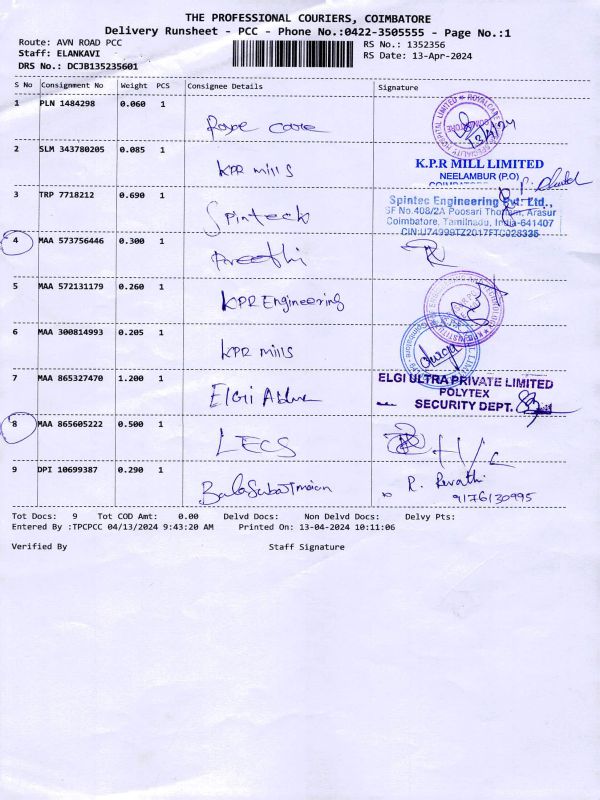 THE PROFESSIONAL COURIERS, COIMBATORE
Delivery Runsheet - PCC - Phone No.:0422-3505555 - Page No.:1
Route: AVN ROAD PCC
RS No.: 1352356
Staff: ELANKAVI
RS Date: 13-Apr-2024
DRS No.: DCJB135235601
S No Consignment No Weight PCS Consignee Details Signature
1 PLN 1484298 0.060 1 Roye care 13/4/24
2 SLM 343780205 0.085 1 KPR mills
K.P.R MILL LIMITED
NEELAMBUR (P.O)
3 TRP 7718212 0.690 1 Spinteck
Spintec Engineering Pvt. Ltd.,
SF No.408/2A Poosari Thottam, Arasur
Coimbatore, Tamilnadu, India-641407
CIN:U74999TZ2017FTC028335
4 MAA 573756446 0.300 1 Preethi
5 MAA 572131179 0.260 1 KPR Engineering
6 MAA 300814993 0.205 1 KPR mills
7 MAA 865327470 1.200 1 Elgii
ELGI ULTRA PRIVATE LIMITED
POLYTEX
SECURITY DEPT.
8 MAA 865605222 0.500 1 LECS H/c
9 DPI 10699387 0.290 1 R. Revathi
9176130995
Tot Docs: 9 Tot COD Amt: 0.00 Delvd Docs: Non Delvd Docs: Delvy Pts:
Entered By :TPCPCC 04/13/2024 9:43:20 AM Printed On: 13-04-2024 10:11:06
Verified By Staff Signature